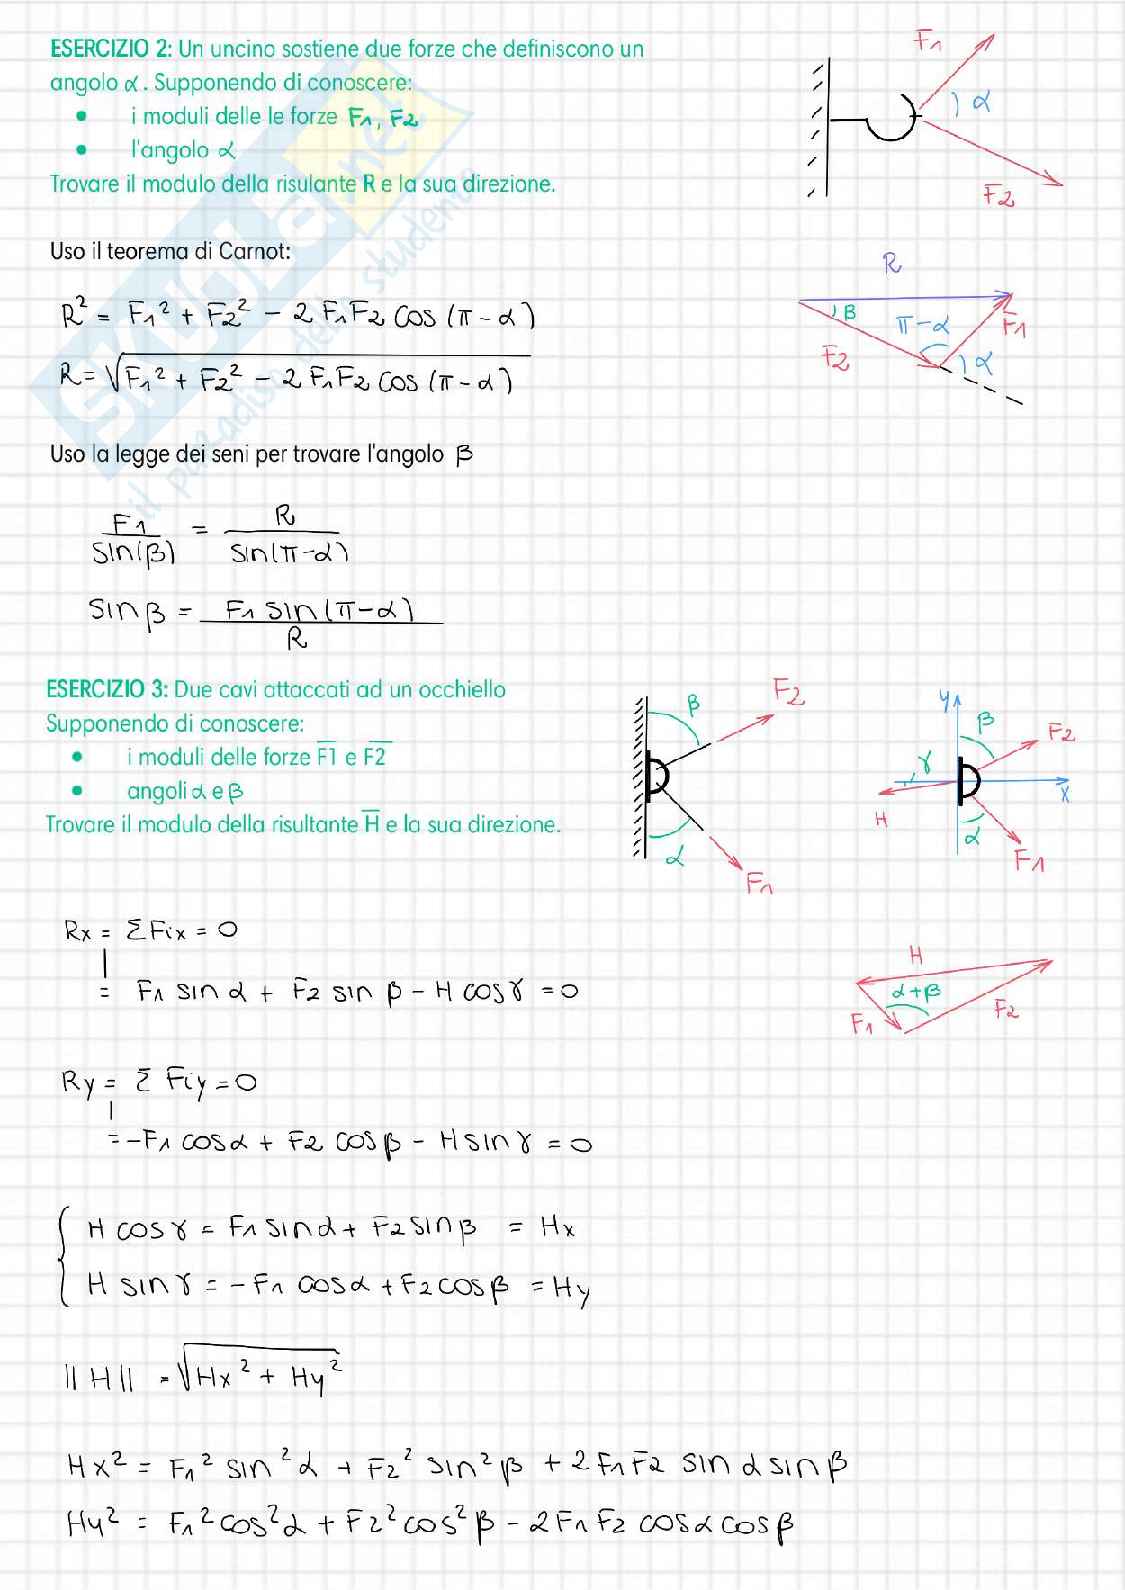 ESERCIZIO 2: Un uncino sostiene due forze che definiscono un
angolo α. Supponendo di conoscere:
• i moduli delle le forze F1, F2
• l'angolo α
Trovare il modulo della risulante R e la sua direzione.
F1
α
F2
Uso il teorema di Carnot:
R² = F1² + F2² - 2 F1F2 cos (π - α)
R = √F1² + F2² - 2 F1F2 cos (π - α)
R
β
π-α
F1
F2
α
Uso la legge dei seni per trovare l'angolo β
F1 / sin(β) = R / sin(π-α)
sin β = F1 sin(π-α) / R
ESERCIZIO 3: Due cavi attaccati ad un occhiello
Supponendo di conoscere:
• i moduli delle forze F̅1̅ e F̅2̅
• angoli α e β
Trovare il modulo della risultante H̅ e la sua direzione.
β
F2
α
F1
y
β
F2
γ
x
H
α
F1
Rx = ΣFix = 0
= F1 sin α + F2 sin β - H cos γ = 0
H
α+β
F1
F2
Ry = Σ Fiy = 0
= -F1 cos α + F2 cos β - H sin γ = 0
H cos γ = F1 sin α + F2 sin β = Hx
H sin γ = -F1 cos α + F2 cos β = Hy
||H|| = √Hx² + Hy²
Hx² = F1² sin²α + F2² sin²β + 2F1F2 sin α sin β
Hy² = F1² cos²α + F2² cos²β - 2F1F2 cos α cos β
SKUOLA.net
il paradiso dello studente